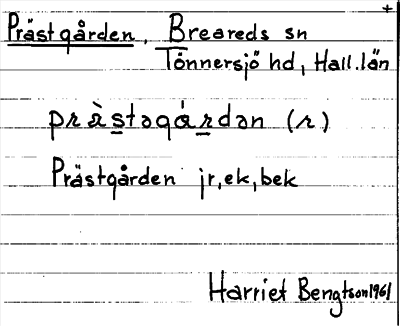 +
Prästgården, Breareds sn
Tönnersjö hd, Hall.län
prὰstəgά̊rdən (r)
Prästgården jr, ek, bek
Harriet Bengtson 1961